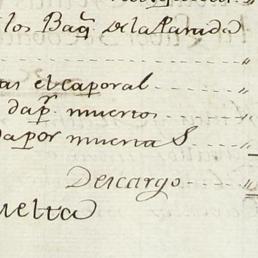 los Baq.^s de la Parida
as el caporal
dap.^r muertos
dapor muerta S
Descargo
uelta